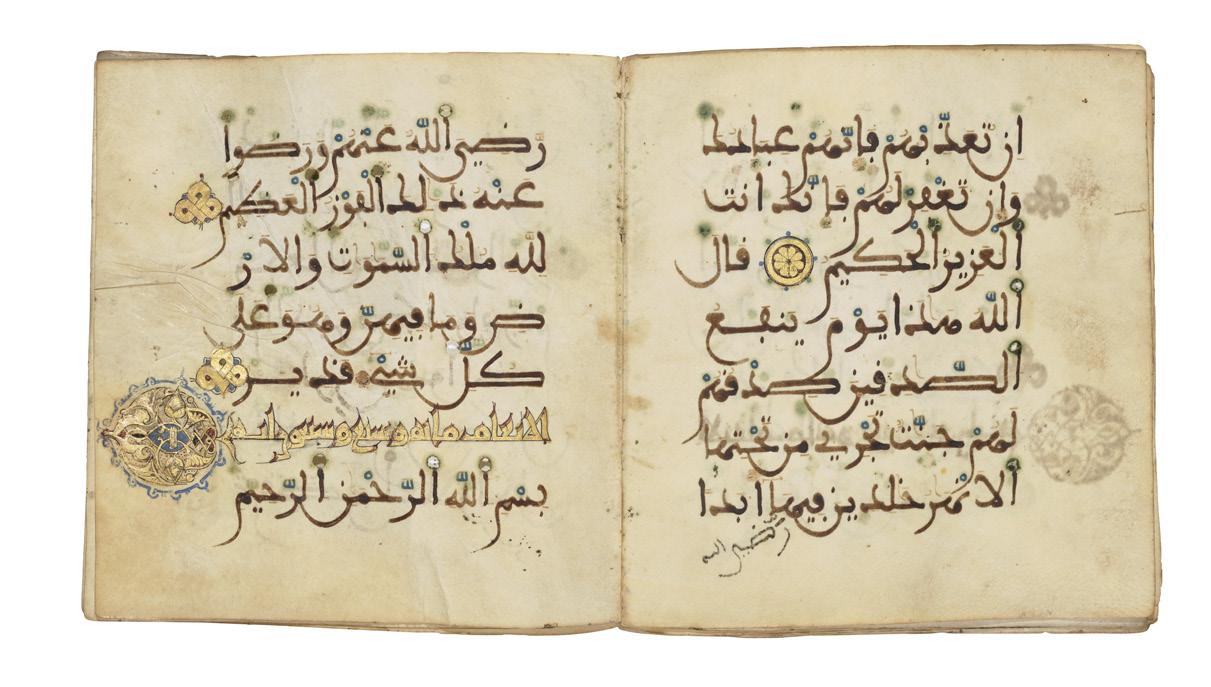 إِن تُعَذِّبْهُمْ فَإِنَّهُمْ عِبَادُكَ
وَإِن تَغْفِرْ لَهُمْ فَإِنَّكَ أَنتَ
اَلْعَزِيزُ اَلْحَكِيمُ قَالَ
اَللَّهُ هَذَا يَوْمَ يَنفَعُ
اَلصَّدِقِينَ صِدْقُهُمْ
لَهُمْ جَنَّتٌ تَجْرِي مِن تَحْتِهَا
اَلأَنْهَرُ خَلِدِينَ فِيهَا أَبَدًا
رضي الله
رَّضِيَ اَللَّهُ عَنْهُمْ وَرَضُوا
عَنْهُ ذَلِكَ اَلْفَوْزُ اَلْعَظِيمُ
لِلَّهِ مُلْكُ اَلسَّمَوَتِ وَالأَرْ
ضِ وَمَا فِيهِنَّ وَهُوَ عَلَى
كُلِّ شَيْءٍ قَدِيرٌ
الانعام مائة وسبع وستون اية
بِسْمِ اَللَّهِ اَلرَّحْمَنِ اَلرَّحِيمِ